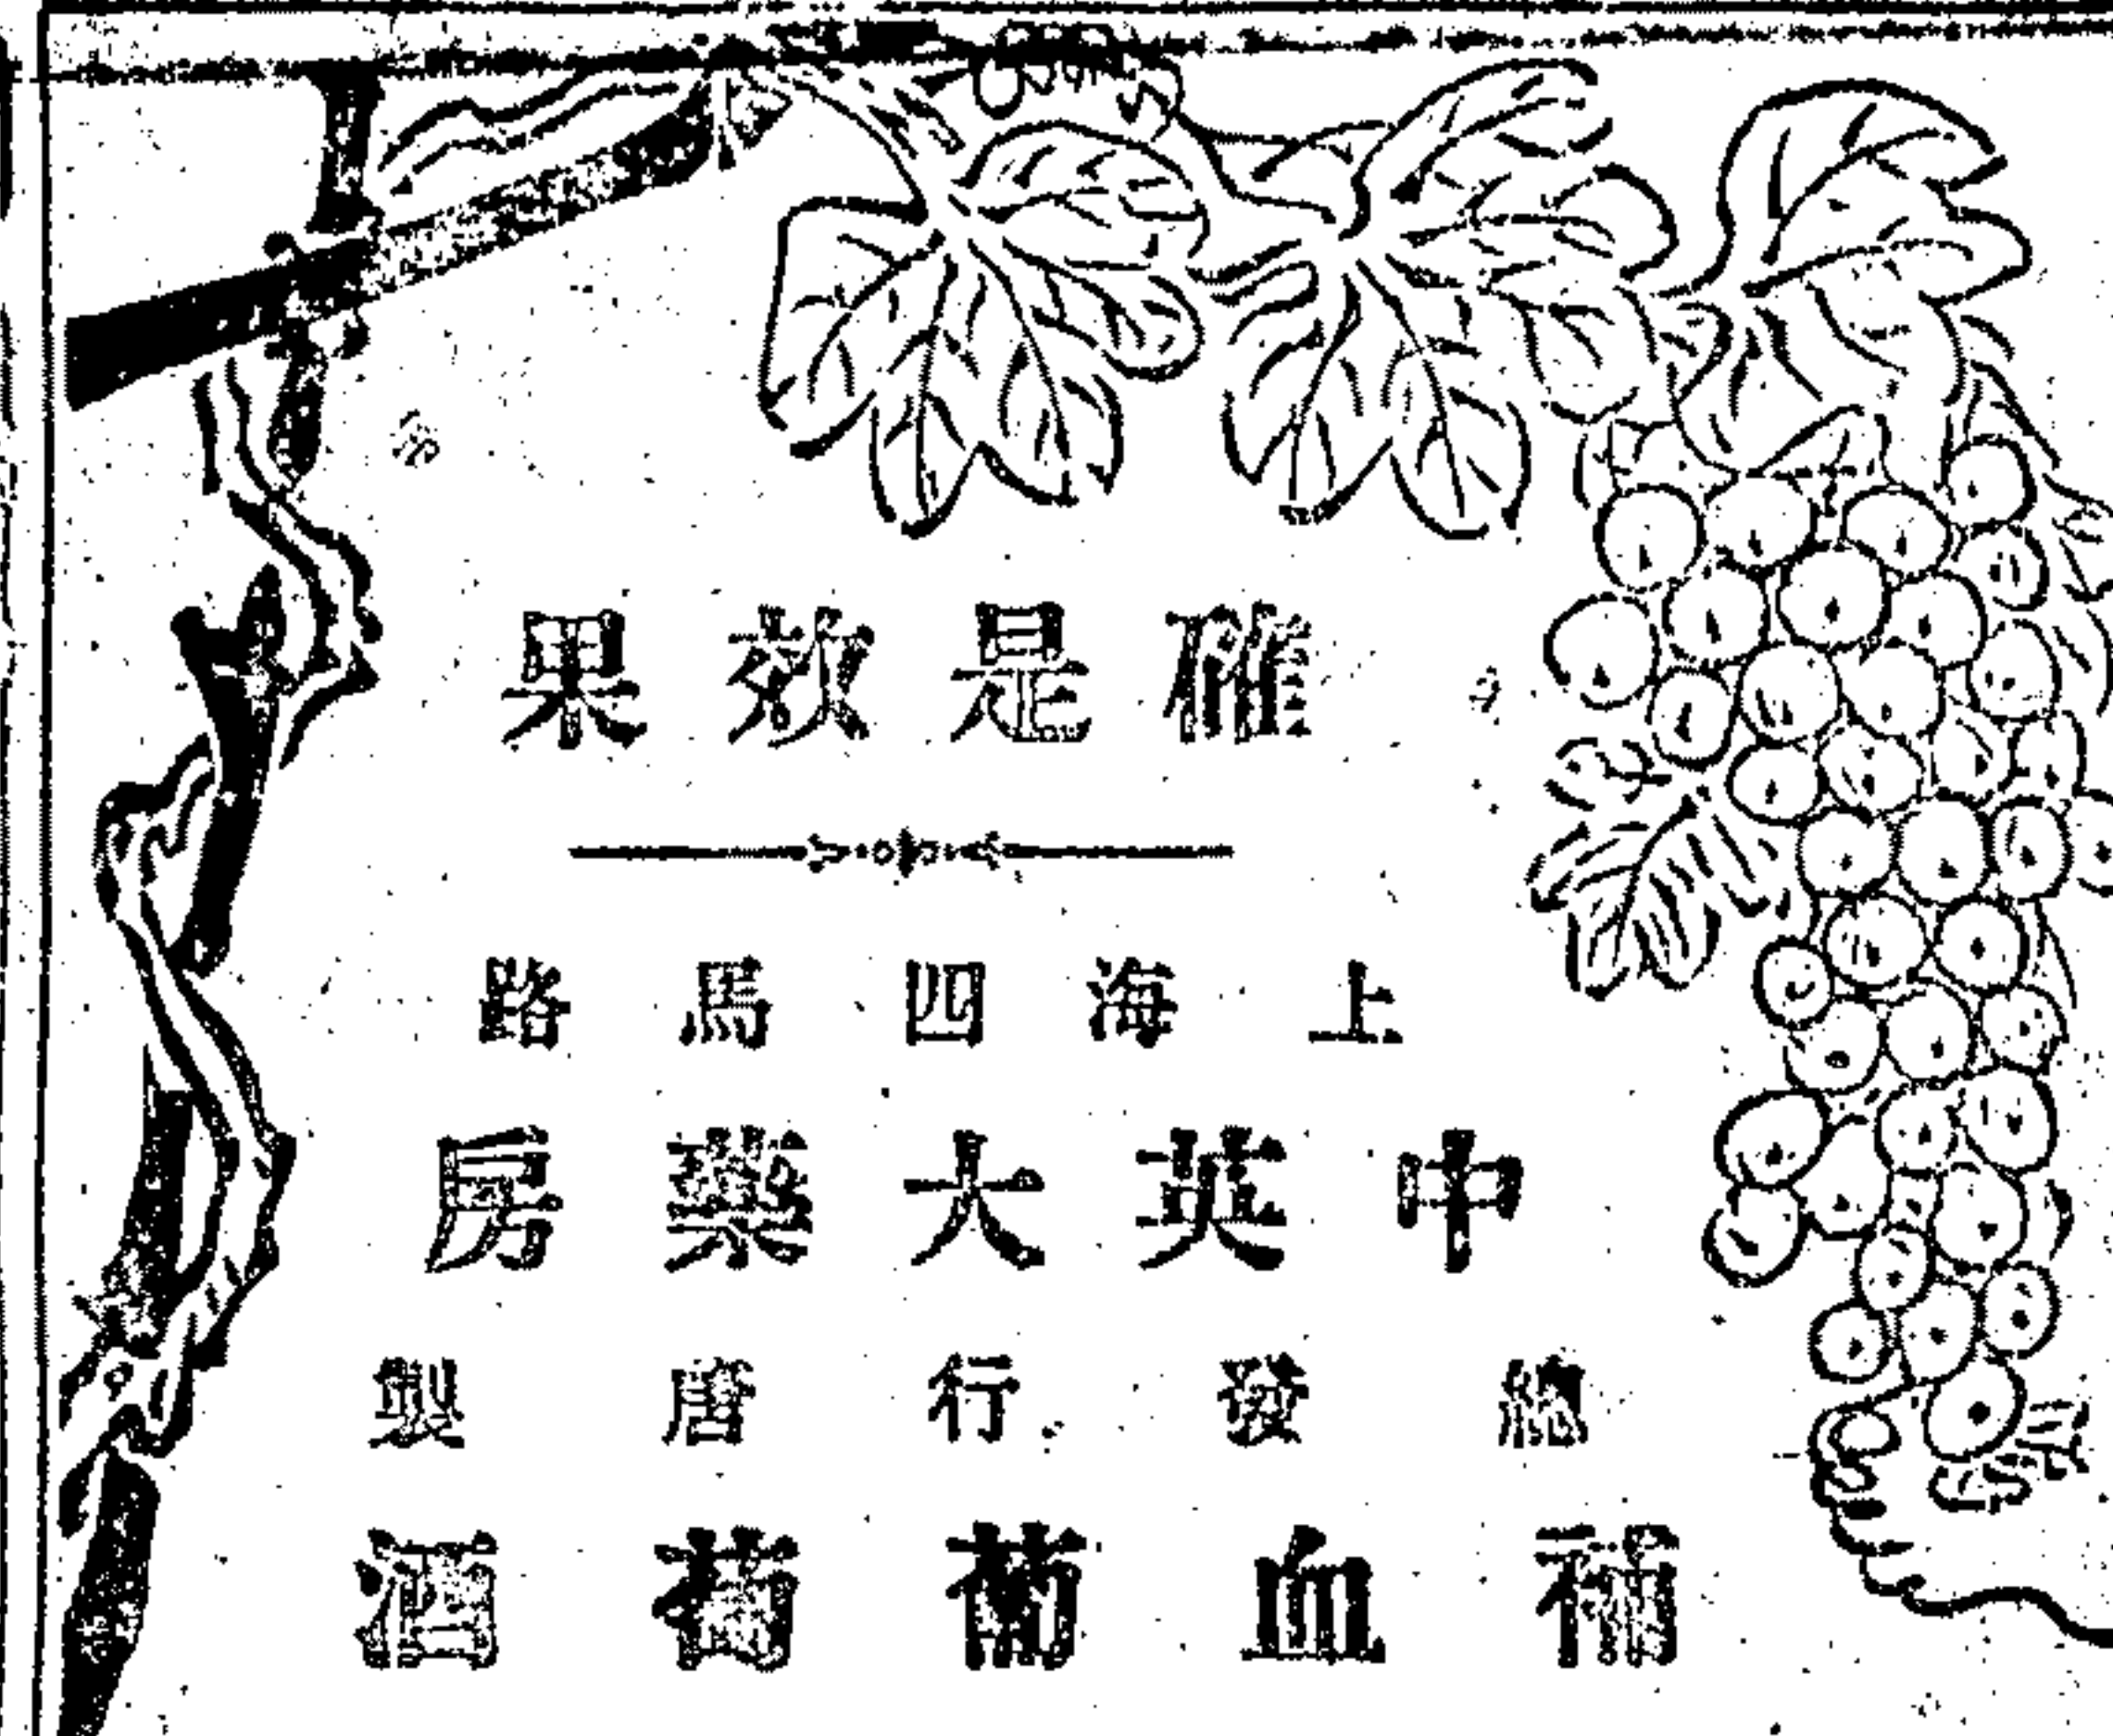 確是效果
上海四馬路
中英大藥房
總發行唐製
補血葡萄酒